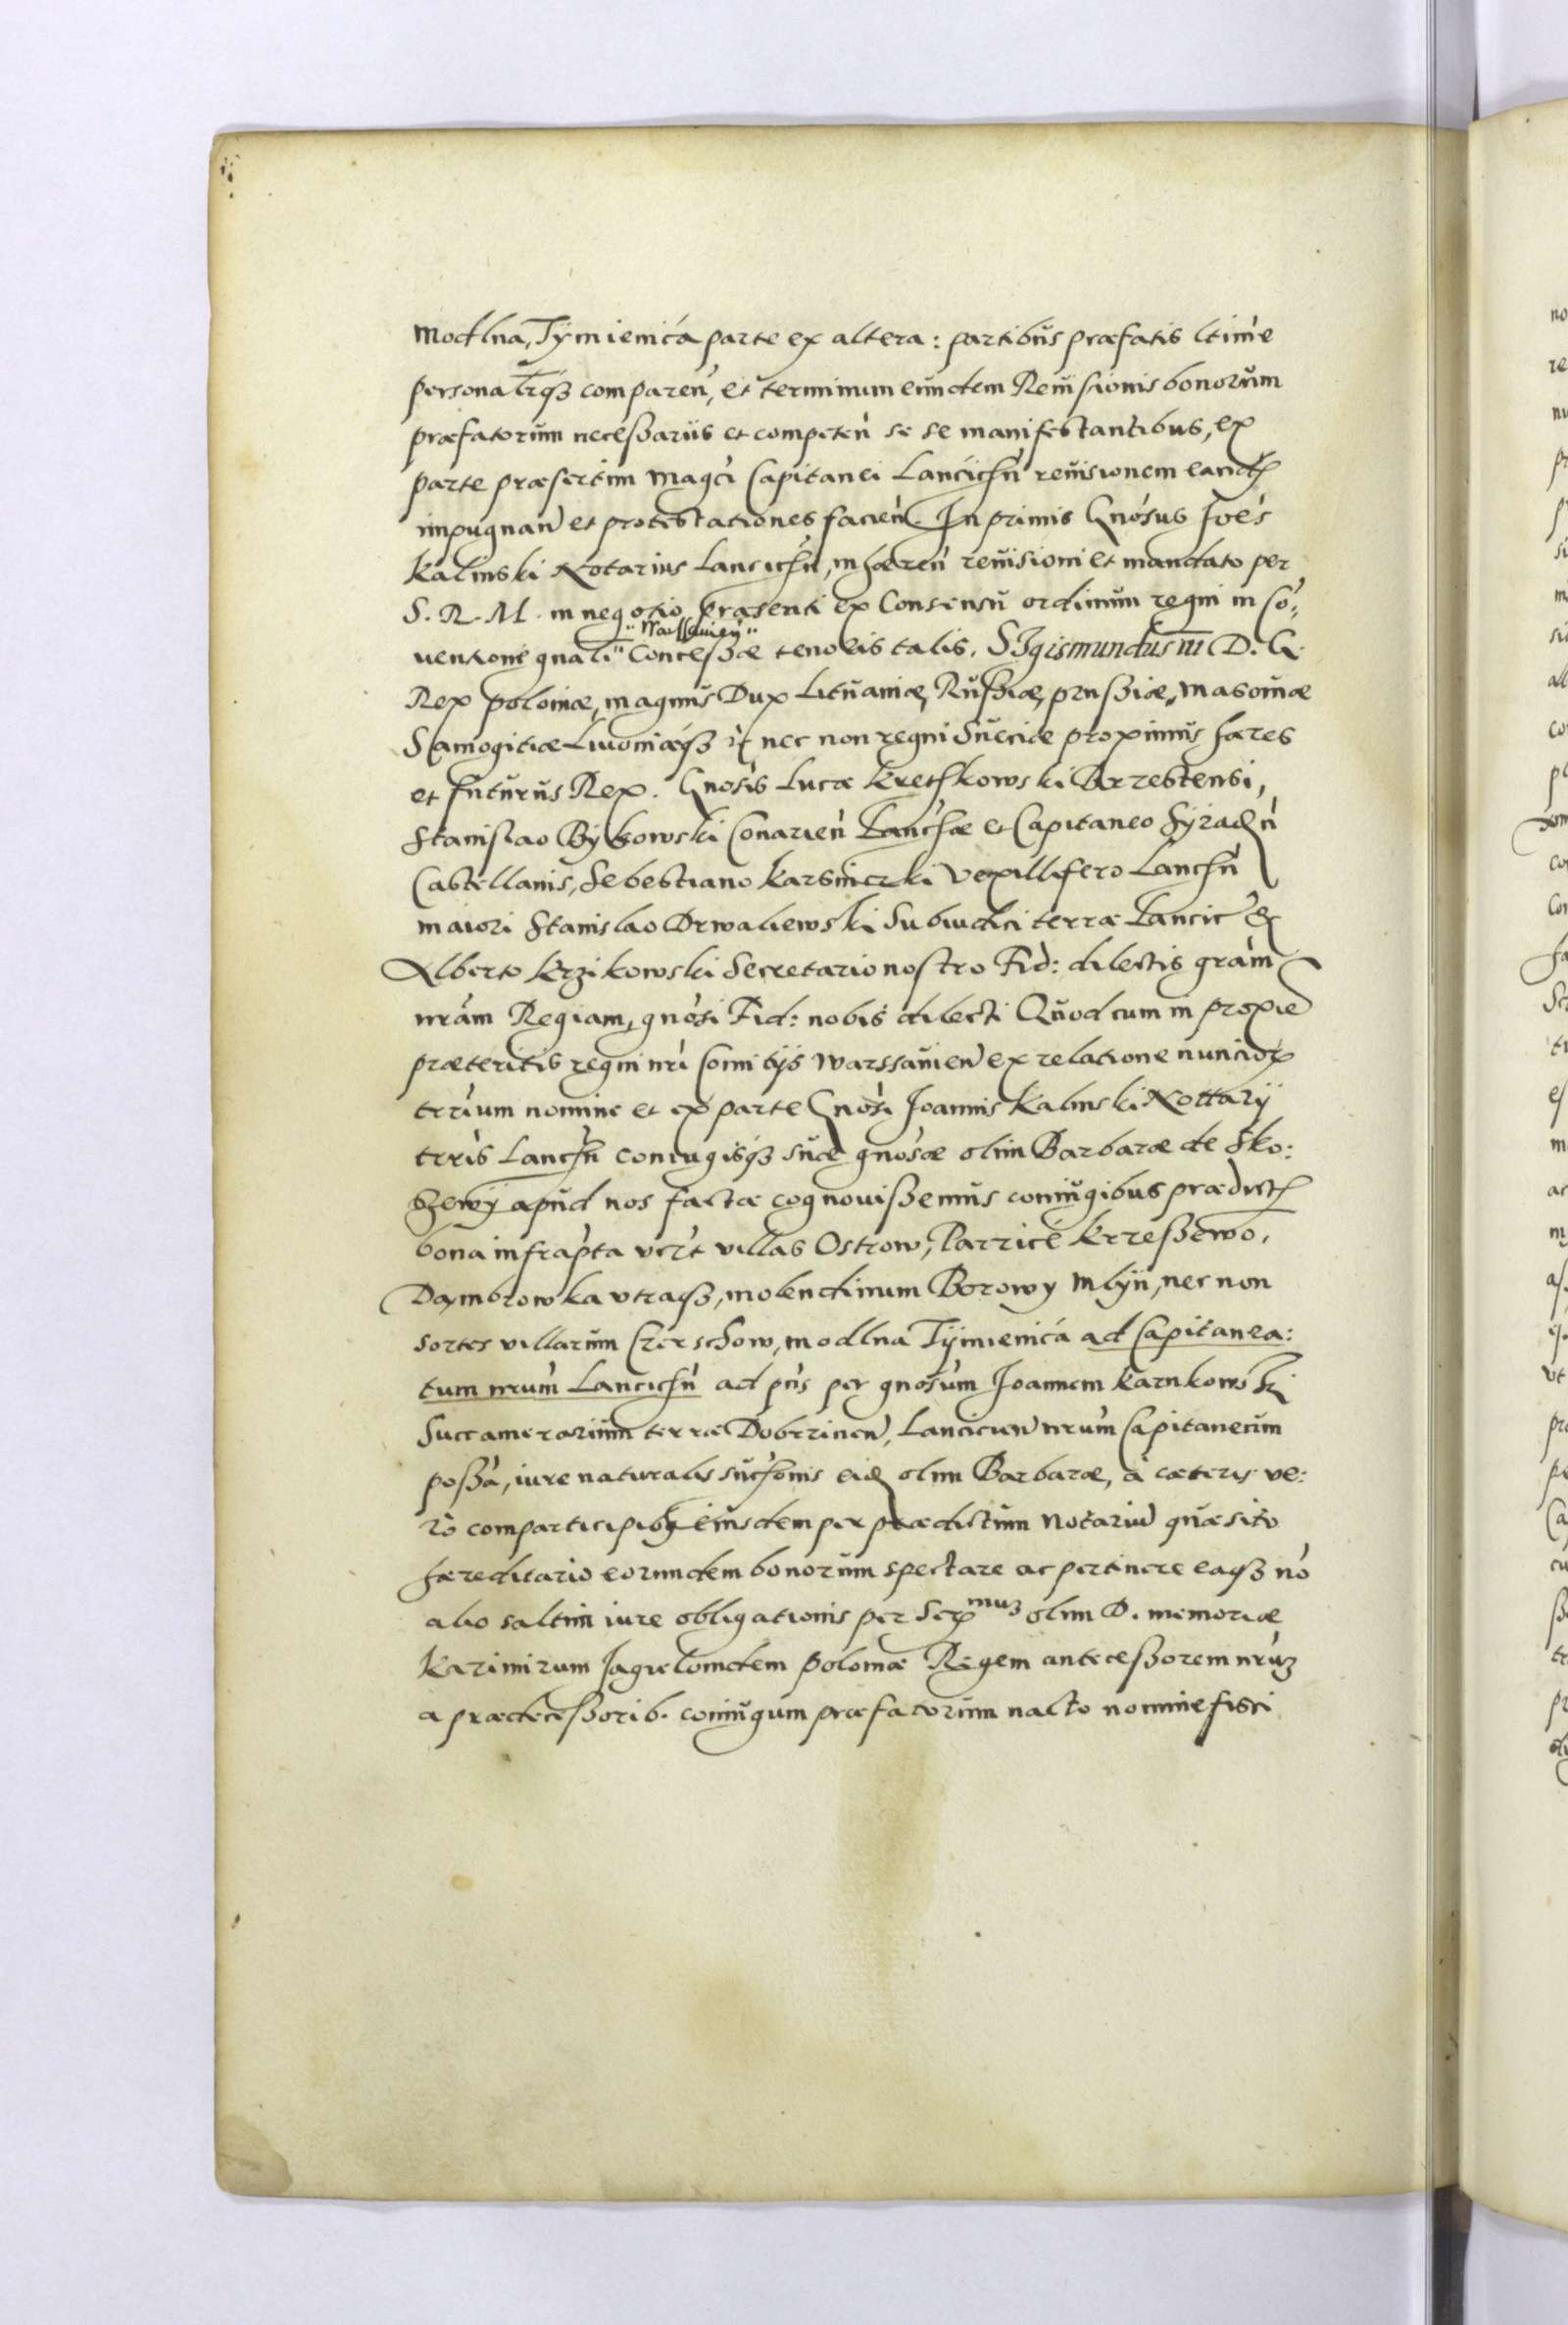 Modlna, Tÿmienica parte ex altera: partibus præfatis ltime
personalrqz comparen, et terminum eundem Reuisionis bonorum
præfatorum necessariis et competen se se manifestantibus, ex
parte præsertim Magci Capitanei Lancichn reuisionem eand
impugnan et protestationes facien. In primis Gnosus Joes
Kalinski Notarius Lancichn, inhæren reuisioni et mandato per
S. R. M. in negotio præsenti ex Consensu ordinum regni in Co-
uentione gnali "Warssauien" Concessæ tenoris talis. SIgismundus III D. G.
Rex poloniæ, magnus Dux Lituaniæ, Russiæ, prussiæ, masouiæ
Samogitiæ Liuoniæqz nec non regni Sueciæ proximus hæres
et futurus Rex. Gnosis Lucæ Kretkowski Brzestensi,
Stanislao Bÿkowski Conarien Lanchæ et Capitaneo Sÿradn
Castellanis, Sebestiano Karsniczki Vexillifero Lanchn
maiori Stanislao Drwaliewski Subiudici terræ Lancic et
Alberto Krzikowski Secretario nostro Fid: dilectis gram
nram Regiam, gnosi Fid: nobis dilecti Quod cum in proxie
præteritis regni nri Comitÿs Warssauien ex relatione nuncior
terrium nomine et ex parte Gnosi Joannis Kalinski Nottarÿ
terris Lanchn coniugisqz suæ gnosæ olim Barbaræ de Sko:
szewÿ apud nos factæ cognouissemus coniugibus prædict
bona infrapta vert villas Ostrow, Parzice Krzessewo,
Daymbrowka vtraqz, molendinum Borowy Mlÿn, nec non
sortes villarum Czerschow, modlna Tÿmienica ad Capitanea:
tum nrum Lancichn ad pns per gnosum Joannem Karnkowski
Succamerarium terræ Dobrzinen, Lancicien nrum Capitaneum
possa, iure naturalis suchonis eid olim Barbaræ, a cæteris ve:
ro comparticipibz eiusdem per prædictum Notariu quæsito
hæreditario eorundem bonorum spectare ac pertinere eaqz no
alio saltim iure obligationis per Ser muz olim D. memoriæ
Kazimirum Jagielonidem poloniæ Regem antecessorem nruz
a prædecessorib. coniugum præfatorum nacto nomine fisci